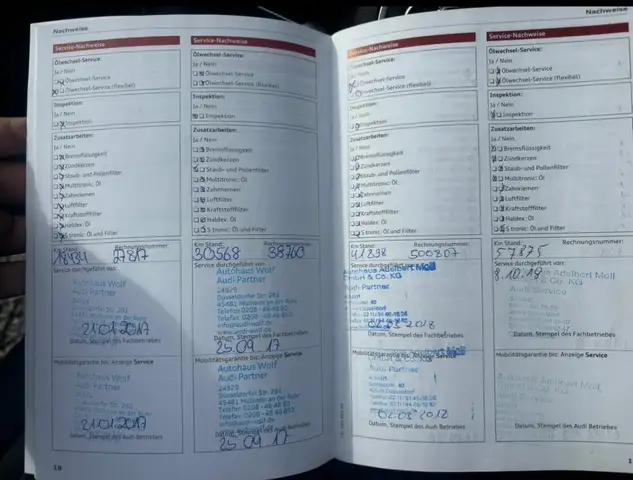 Nachweise
Service-Nachweise
Ölwechsel-Service:
Ja / Nein
Ölwechsel-Service
Ölwechsel-Service (flexibel)
Inspektion:
Ja / Nein
Inspektion
Zusatzarbeiten:
Ja / Nein
Bremsflüssigkeit
Zündkerzen
Staub- und Pollenfilter
Multitronic: Öl
Zahnriemen
Luftfilter
Kraftstofffilter
Haldex: Öl
S tronic: Öl und Filter
Km Stand:
Rechnungsnummer:
Service durchgeführt von:
Autohaus Wolf
Audi Partner
21.01.2017
Datum, Stempel des Fachbetriebes
Mobilitätsgarantie bis: Anzeige Service
Autohaus Wolf
Audi Partner
21.01.2017
Datum, Stempel des Audi Betriebes
18
Service-Nachweise
Ölwechsel-Service:
Ja / Nein
Ölwechsel-Service
Ölwechsel-Service (flexibel)
Inspektion:
Ja / Nein
Inspektion
Zusatzarbeiten:
Ja / Nein
Bremsflüssigkeit
Zündkerzen
Staub- und Pollenfilter
Multitronic: Öl
Zahnriemen
Luftfilter
Kraftstofffilter
Haldex: Öl
S tronic: Öl und Filter
Km Stand:
Rechnungsnummer:
30568
38760
Service durchgeführt von:
Autohaus Wolf
Audi Partner
24929
Düsseldorfer Str. 261
45481 Mülheim an der Ruhr
Datum, Stempel des Fachbetriebes
25.09.17
Mobilitätsgarantie bis: Anzeige Service
Autohaus Wolf
Audi Partner
24929
Düsseldorfer Str. 261
45481 Mülheim an der Ruhr
Datum, Stempel des Audi Betriebes
25.09.17
Service-Nachweise
Ölwechsel-Service:
Ja / Nein
Ölwechsel-Service
Ölwechsel-Service (flexibel)
Inspektion:
Ja / Nein
Inspektion
Zusatzarbeiten:
Ja / Nein
Bremsflüssigkeit
Zündkerzen
Staub- und Pollenfilter
Multitronic: Öl
Zahnriemen
Luftfilter
Kraftstofffilter
Haldex: Öl
S tronic: Öl und Filter
Km Stand:
Rechnungsnummer:
41298
Service durchgeführt von:
Autohaus Adelbert Moll
GmbH & Co. KG
Audi Partner
2018
Datum, Stempel des Fachbetriebes
Mobilitätsgarantie bis: Anzeige Service
Audi Partner
Datum, Stempel des Audi Betriebes
Nachweise
Service-Nachweise
Ölwechsel-Service:
Ja / Nein
Ölwechsel-Service
Ölwechsel-Service (flexibel)
Inspektion:
Ja / Nein
Inspektion
Zusatzarbeiten:
Ja / Nein
Bremsflüssigkeit
Zündkerzen
Staub- und Pollenfilter
Multitronic: Öl
Zahnriemen
Luftfilter
Kraftstofffilter
Haldex: Öl
S tronic: Öl und Filter
Km Stand:
Rechnungsnummer:
57875
Service durchgeführt von:
Adelbert Moll
& Co. KG
Audi Service
Datum, Stempel des Fachbetriebes
Mobilitätsgarantie bis: Anzeige Service
Adelbert Moll
Datum, Stempel des Audi Betriebes